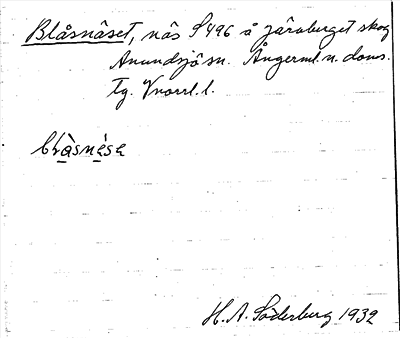 Blåsnäset, näs S496 å Järnberget skog
Anundsjö sn. Ångerml. n. doms.
tg. Vnorrl. l.
blåsnése
H. A. Söderberg 1932